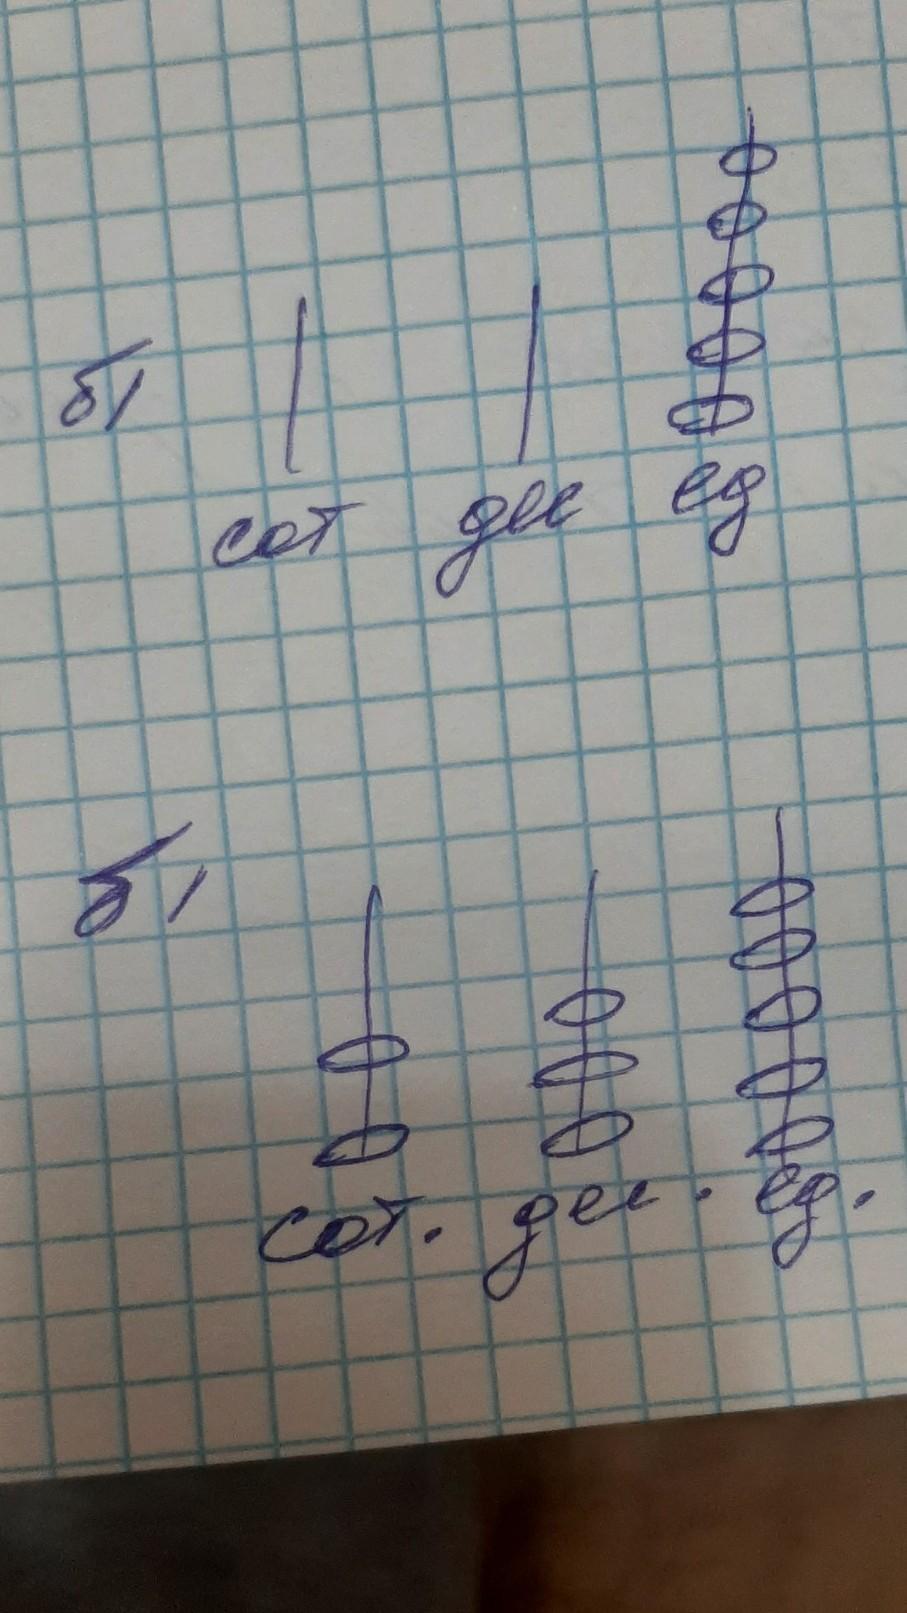 б)
сот дес ед
б)
сот. дес. ед.